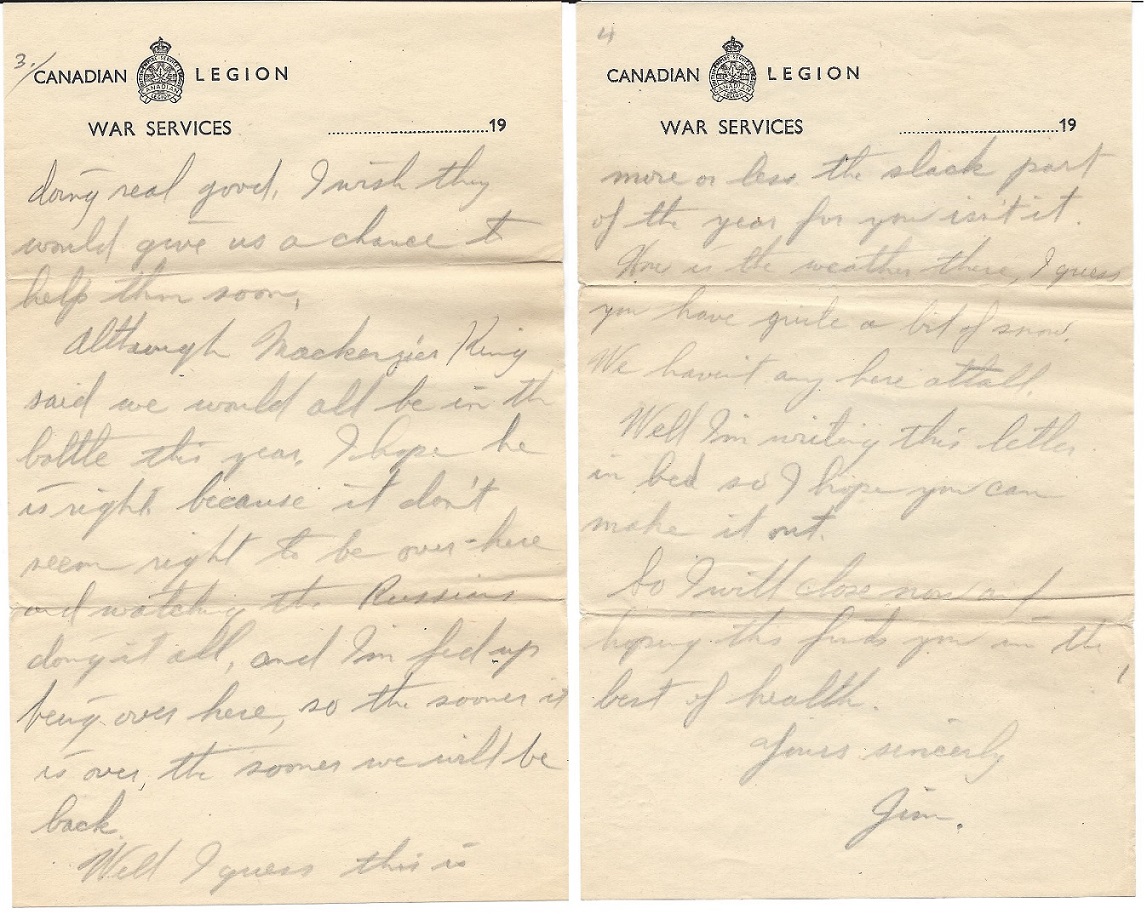 3./
CANADIAN LEGION
WAR SERVICES
19
doing real good, I wish they
would give us a chance to
help them soon,
Although Mackenzies King
said we would all be in the
battle this year, I hope he
is right because it don't
seem right to be over here
and watching the Russians
doing it all, and I'm fed up
being over here, so the sooner it
is over, the sooner we will be
back.
Well I guess this is
4
CANADIAN LEGION
WAR SERVICES
19
more or less the slack part
of the year for you isn't it.
How is the weather there, I guess
you have quite a bit of snow.
We haven't any here attall.
Well I'm writing this letter
in bed so I hope you can
make it out.
So I will close now and
hoping this finds you in the
best of health.
Yours sincerly
Jim.